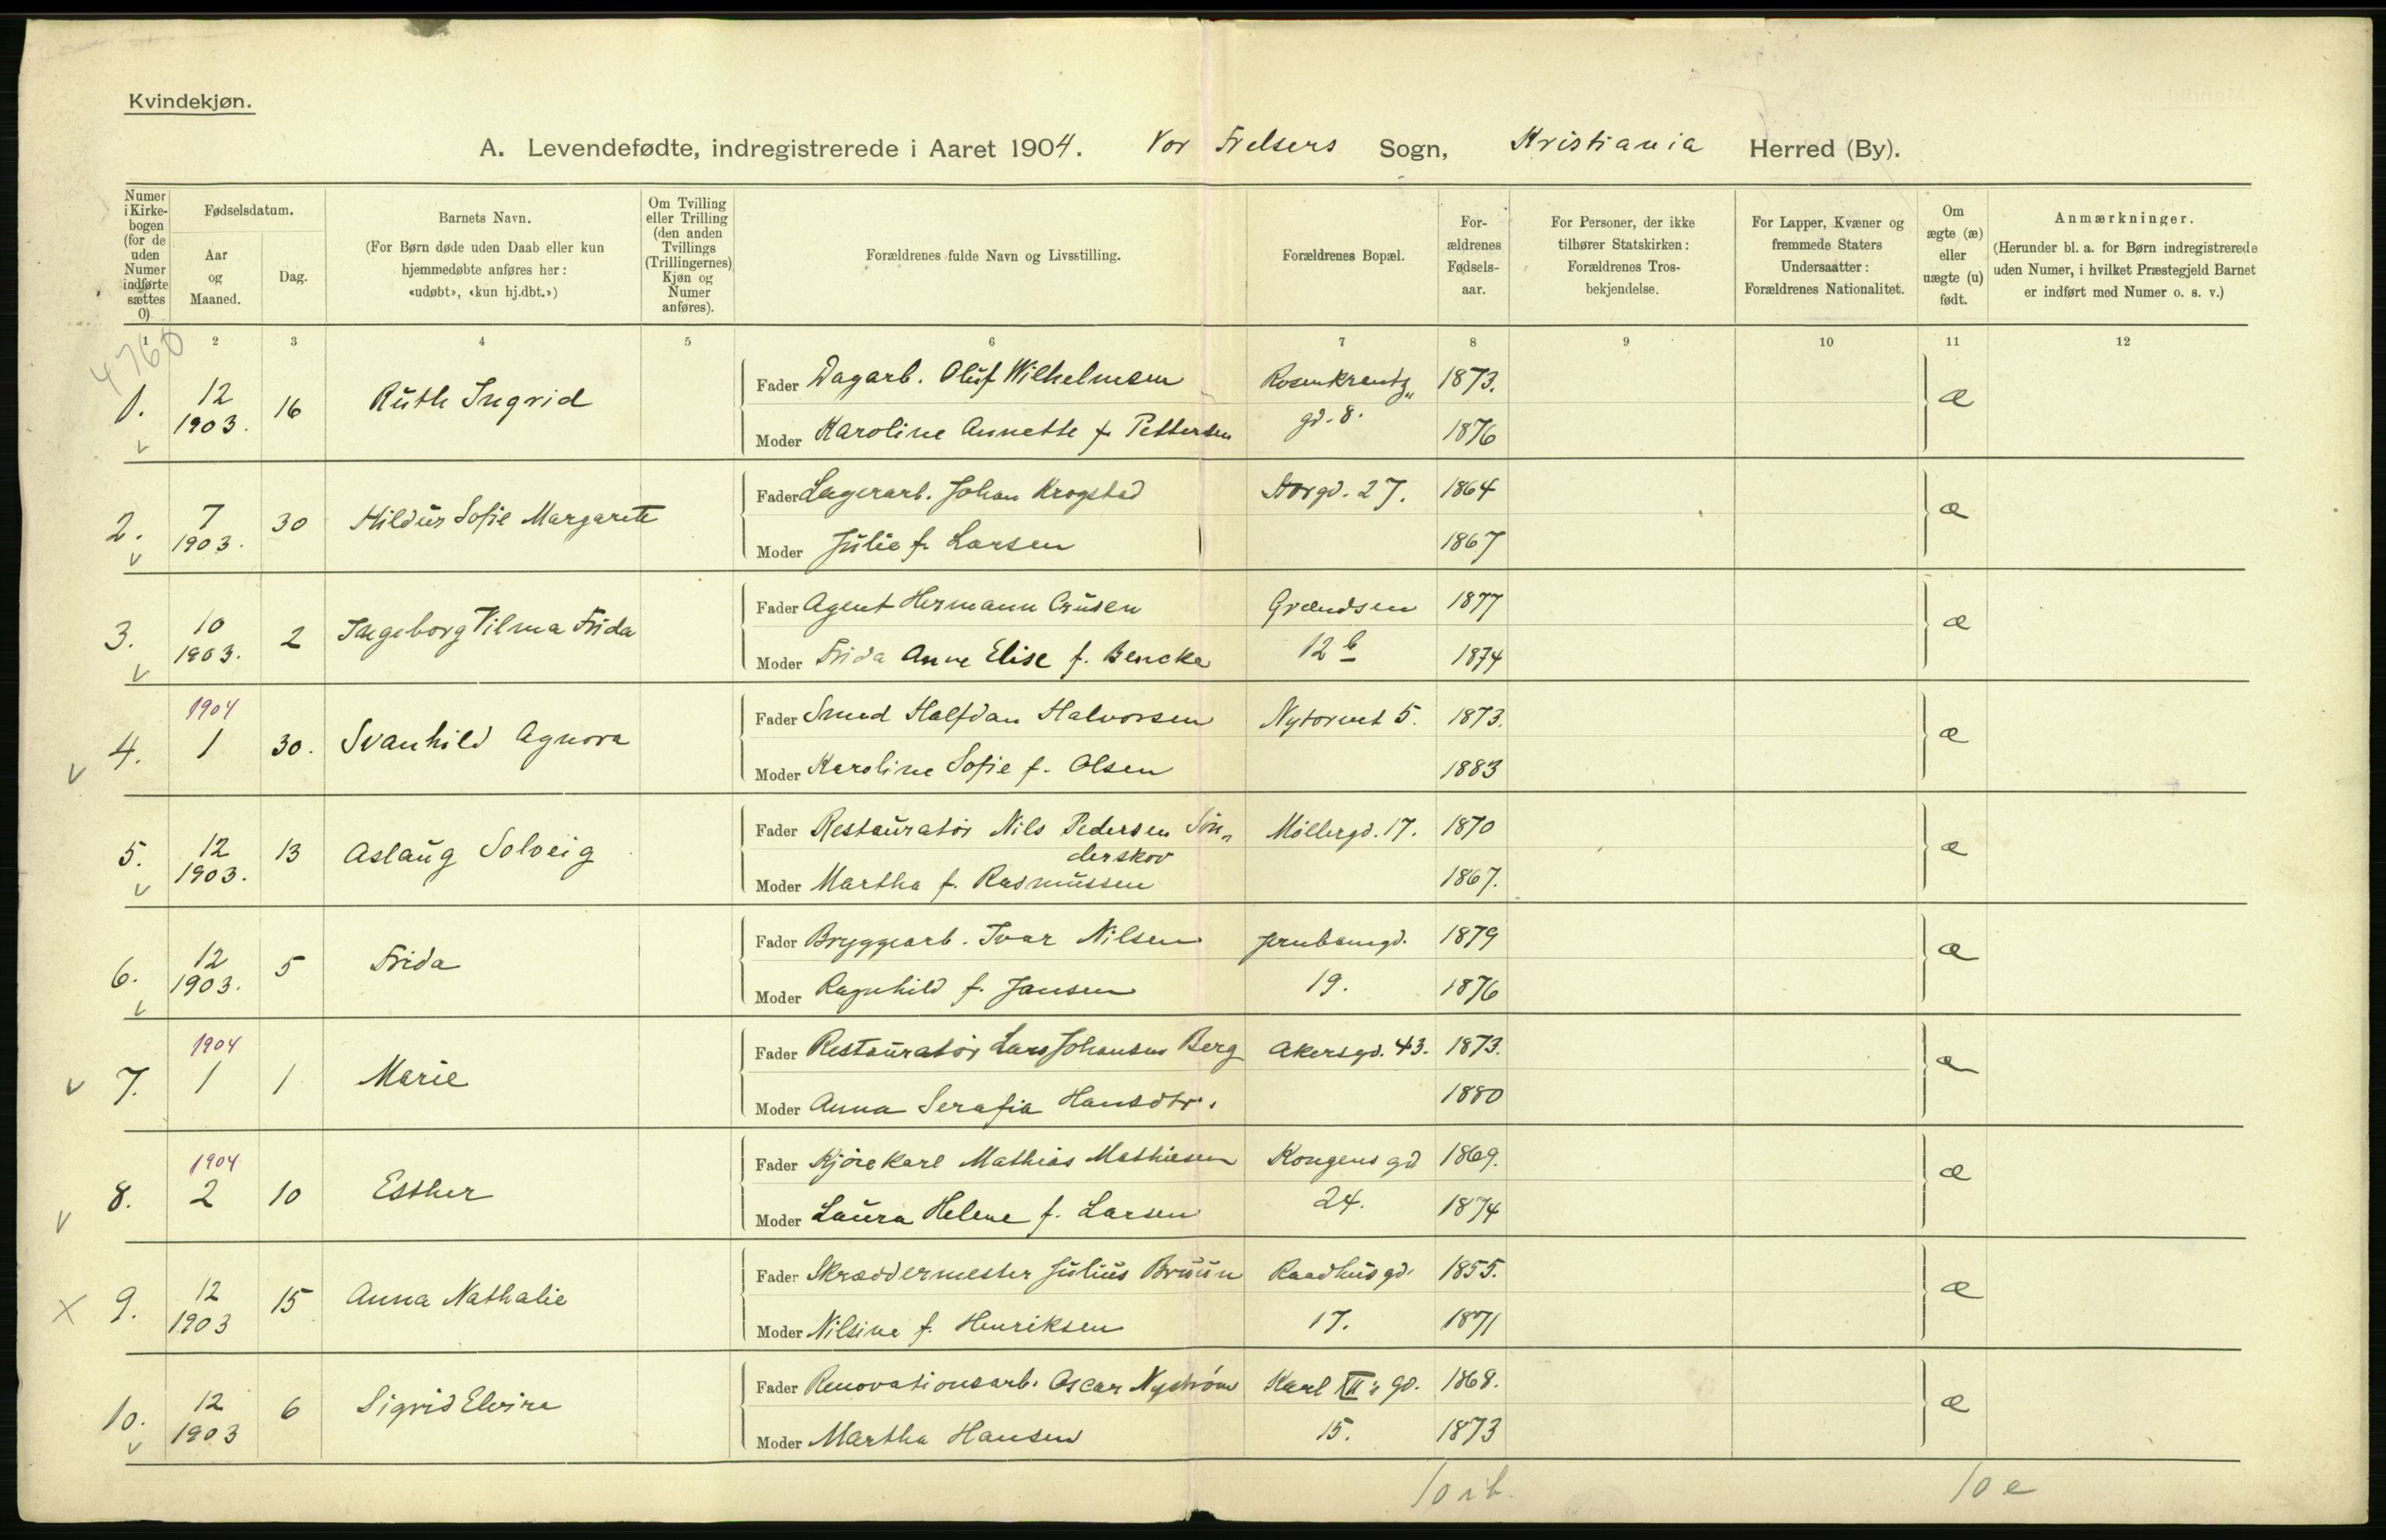 Kvindekjøn.
A. Levendefødte, indregistrerede i Aaret 1904. Vor Frelsers Sogn, Kristiania Herred (By).
Numer i Kirke-bogen (for de uden Numer indførte sættes 0)
Fødselsdatum.
Aar og Maaned.
Dag.
Barnets Navn.
(For Børn døde uden Daab eller kun hjemmedøbte anføres her: «udøbt», «kun hj.dbt.»)
Om Tvilling eller Trilling (den anden Tvillings (Trillingernes) Kjøn og Numer anføres).
Forældrenes fulde Navn og Livsstilling.
Forældrenes Bopæl.
For-ældrenes Fødsels-aar.
For Personer, der ikke tilhører Statskirken: Forældrenes Tros-bekjendelse.
For Lapper, Kvæner og fremmede Staters Undersaatter: Forældrenes Nationalitet.
Om ægte (æ) eller uægte (u) født.
Anmærkninger.
(Herunder bl. a. for Børn indregistrerede uden Numer, i hvilket Præstegjeld Barnet er indført med Numer o. s. v.)
1 2 3 4 5 6 7 8 9 10 11 12
4760
1. 12 1903. 16 Ruth Ingrid
Fader Dagarb. Oluf Wilhelmsen Rosenkrantz„ 1873. æ
Moder Karoline Annette f. Pettersen gd. 8. 1876
2. 7 1903. 30 Hildur Sofie Margarete
Fader Lagerarb. Johan Krogstad Storgd. 27. 1864 æ
Moder Julie f. Larsen 1867
3. 10 1903. 2 Ingeborg Vilma Frida
Fader Agent Hermann Crusen Grændsen 1877 æ
Moder Frida Anne Elise f. Bencke 12 b 1874
4. 1904 1 30. Svanhild Agnora
Fader Smed Halfdan Halvorsen Nytorvet 5. 1873. æ
Moder Karoline Sofie f. Olsen 1883
5. 12 1903. 13 Aslaug Solveig
Fader Restauratør Nils Pedersen Søn„ Møllergd. 17. 1870 æ
derskov
Moder Martha f. Rasmussen 1867.
6. 12 1903. 5 Frida
Fader Bryggearb. Ivar Nilsen Jernbanegd. 1879 æ
Moder Ragnhild f. Jansen 19. 1876
7. 1904 1 1 Marie
Fader Restauratør Lars Johansen Berg Akersgd. 43. 1873. æ
Moder Anna Serafia Hansdtr. 1880
8. 1904 2 10 Esther
Fader Kjørekarl Mathias Mathiesen Kongens gd 1869. æ
Moder Laura Helene f. Larsen 24. 1874
9. 12 1903 15 Anna Nathalie
Fader Skræddermester Julius Bruun Raadhusgd. 1855. æ
Moder Nilsine f. Henriksen 17. 1871
10. 12 1903 6 Sigrid Elvira
Fader Renovationsarb. Oscar Nystrøm Karl XII's gd. 1868. æ
Moder Martha Hansen 15. 1873
10 e